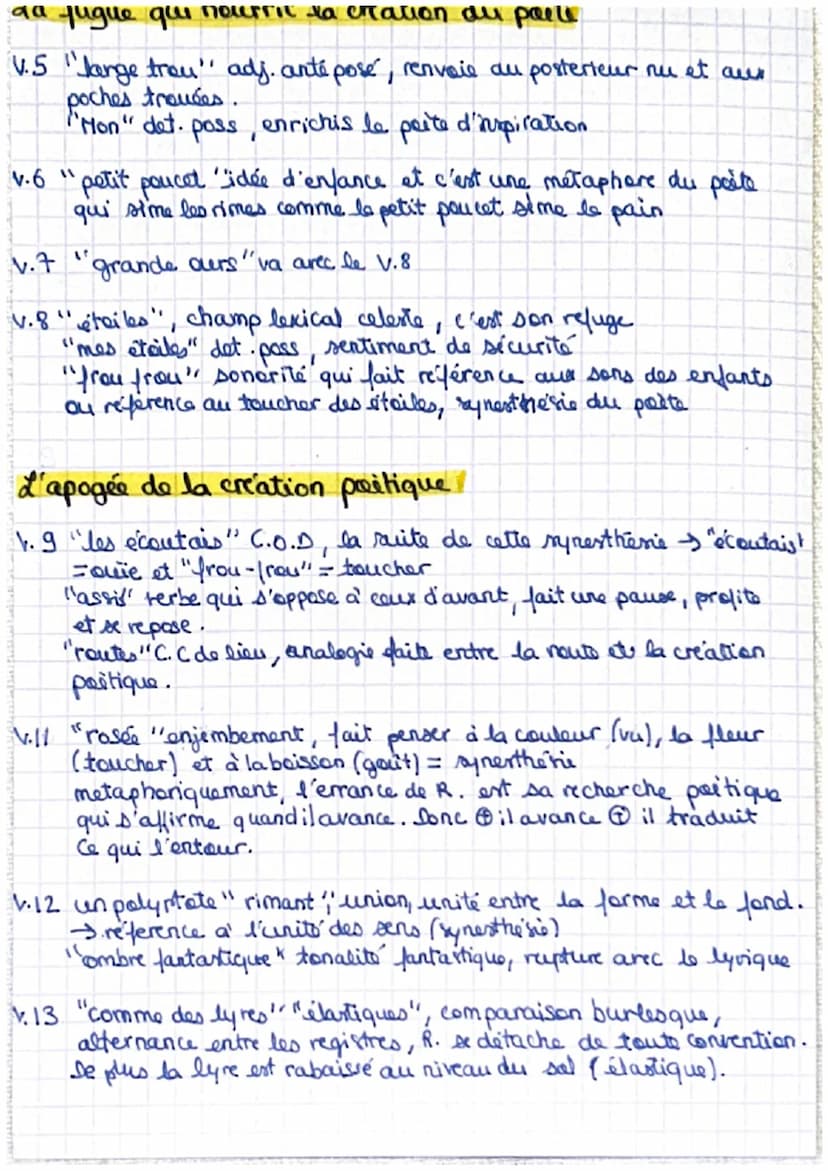 La fugue qui nourrit la création du poète
V.5 "large trou" adj. antéposé, renvoie au posterieur nu et aux
poches trouées.
"Mon" det. poss, enrichis le poète d'inspiration
V.6 "petit poucet" idée d'enfance et c'est une métaphore du poète
qui sème les rimes comme le petit poucet sème le pain
V.7 "grande ours" va avec le V.8
V.8 "étoiles", champ lexical celeste, c'est son refuge
"mes étoiles" det. poss, sentiment de sécurité
"frou frou" sonorité qui fait référence aux sons des enfants
ou référence au toucher des étoiles, synesthésie du poète
L'apogée de la création poétique
V.9 "les écoutais" C.O.D, la suite de cette synesthésie → "écoutais"
=ouïe et "frou-frou" = toucher
"assis" verbe qui s'oppose à ceux d'avant, fait une pause, profite
et se repose.
"routes" C.C de lieu, analogie faite entre la route et la création
poétique.
V.11 "rosée" enjembement, fait penser à la couleur (vu), la fleur
(toucher) et à la boisson (goût) = synesthésie
metaphoriquement, l'errance de R. est sa recherche poétique
qui s'affirme quand il avance. Donc ⊕ il avance ⊕ il traduit
ce qui l'entour.
V.12 un polyptote "rimant", union, unité entre la forme et le fond.
→ référence à l'unité des sens (synesthésie)
"ombre fantastique" tonalité fantastique, rupture avec le lyrique
V.13 "comme des lyres" "élastiques", comparaison burlesque,
alternance entre les registres, R. se détache de toute convention.
De plus la lyre est rabaissé au niveau du sol (élastique).